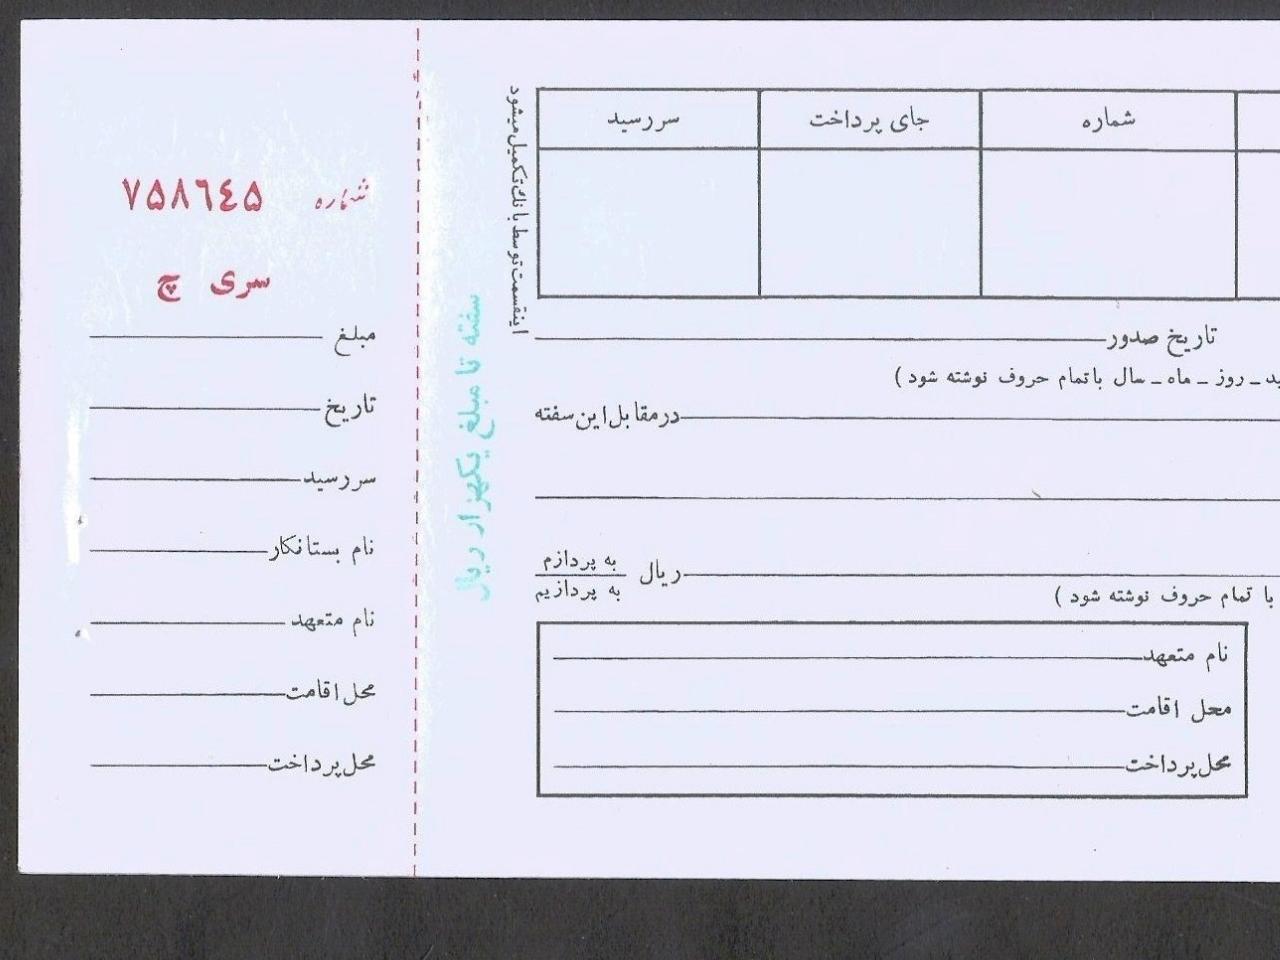 شماره ۷۵۸٦٤۵
سری چ
مبلغ
تاریخ
سررسید
نام بستانکار
نام متعهد
محل اقامت
محل پرداخت
سفته تا مبلغ یکهزار ریال
اینقسمت توسط بانك تکمیل میشود
شماره جای پرداخت سررسید
تاریخ صدور
روز ـ ماه ـ سال باتمام حروف نوشته شود )
درمقابل این سفته
ریال به پردازم
به پردازیم
با تمام حروف نوشته شود )
نام متعهد
محل اقامت
محل پرداخت